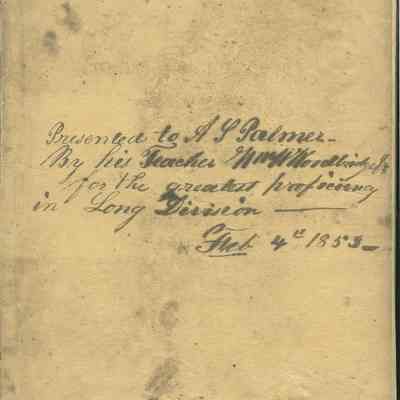 Presented to A S Palmer
By his Teacher Wm W Woodbridge Jr
for the greatest proficiency
in Long Division —
Feb 4th 1853